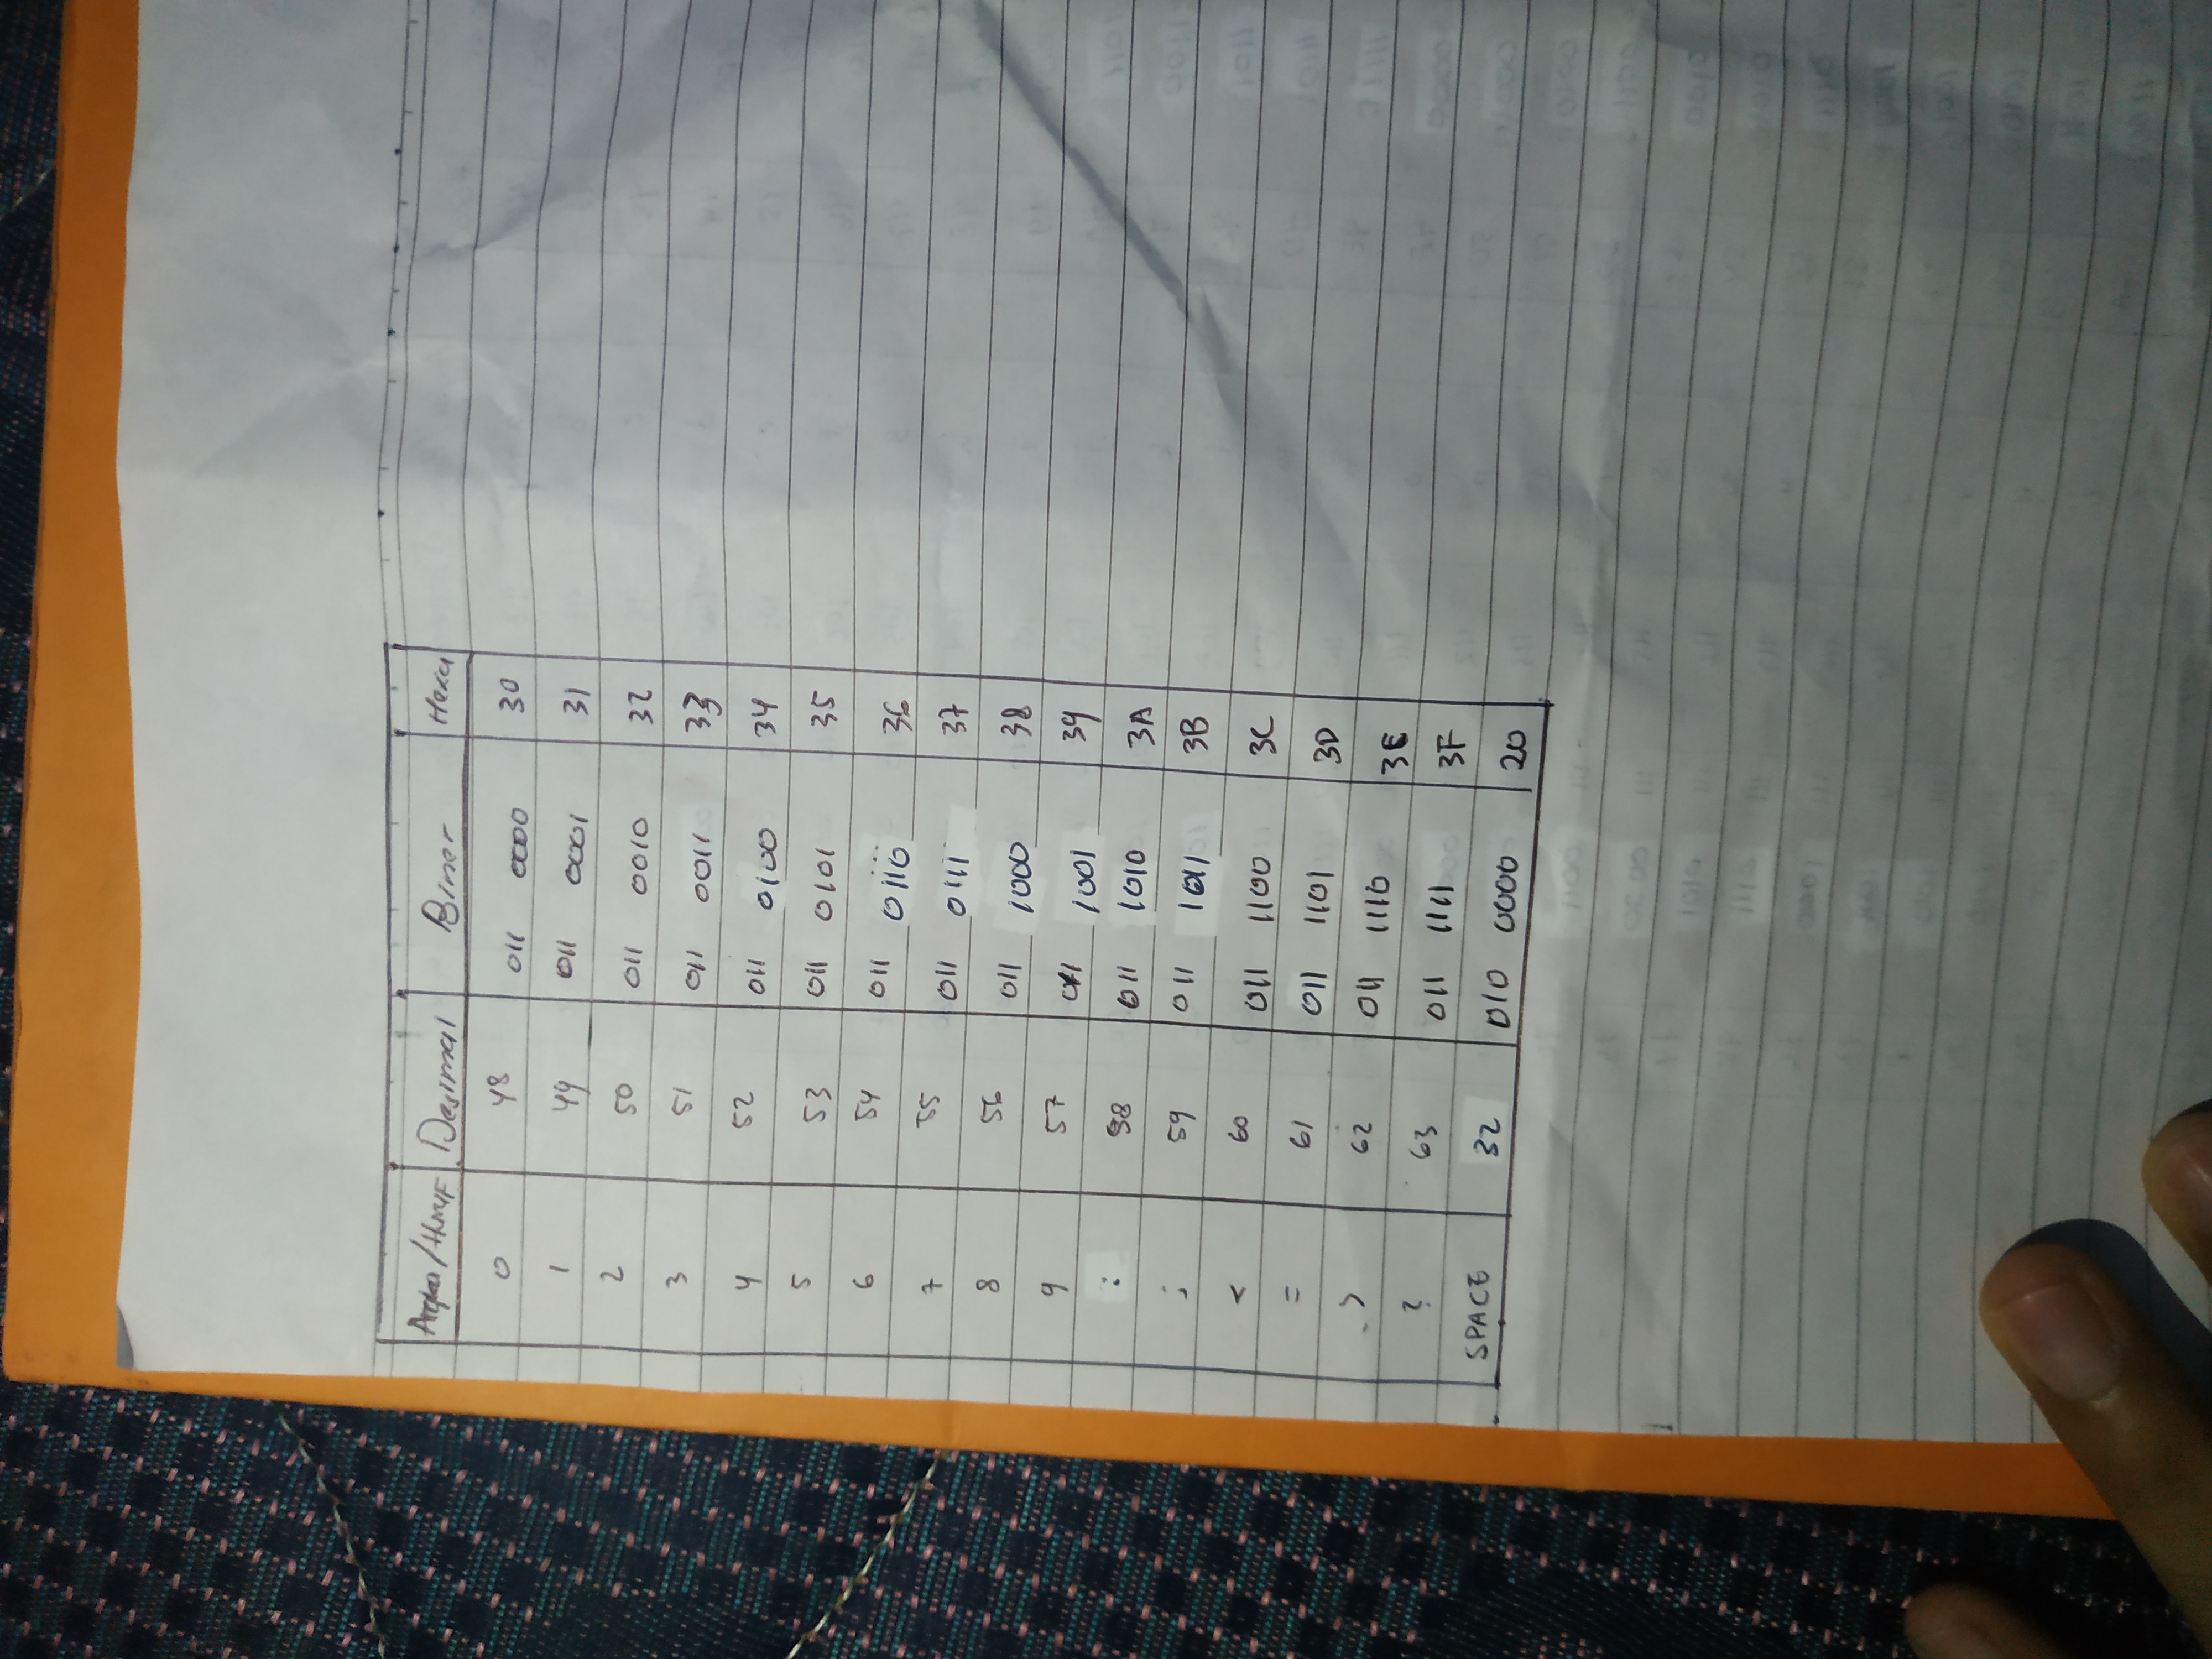 Angka/Huruf Desimal Biner Hexa
0 48 011 0000 30
1 49 011 0001 31
2 50 011 0010 32
3 51 011 0011 33
4 52 011 0100 34
5 53 011 0101 35
6 54 011 0110 36
7 55 011 0111 37
8 56 011 1000 38
9 57 011 1001 39
: 58 011 1010 3A
; 59 011 1011 3B
< 60 011 1100 3C
= 61 011 1101 3D
> 62 011 1110 3E
? 63 011 1111 3F
SPACE 32 010 0000 20